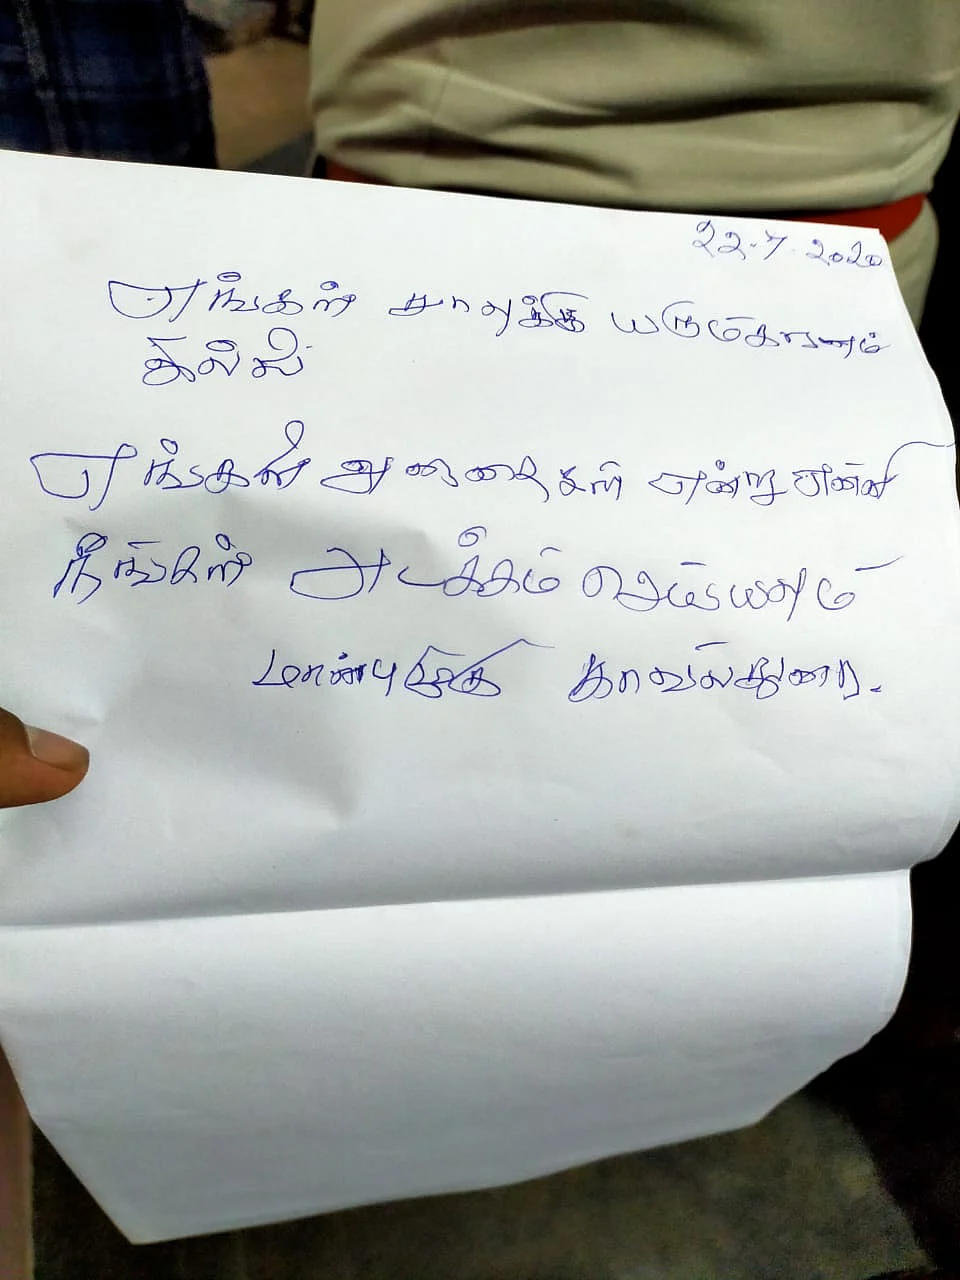 22.7.2020
எங்கள் சாவுக்கு யரும்காரணம்
இல்லை
எங்கள் அனாதைகள் என்று எண்ணி
நீங்கள் அடக்கம் செய்யவும்
மாண்புமிகு காவல்துறை.